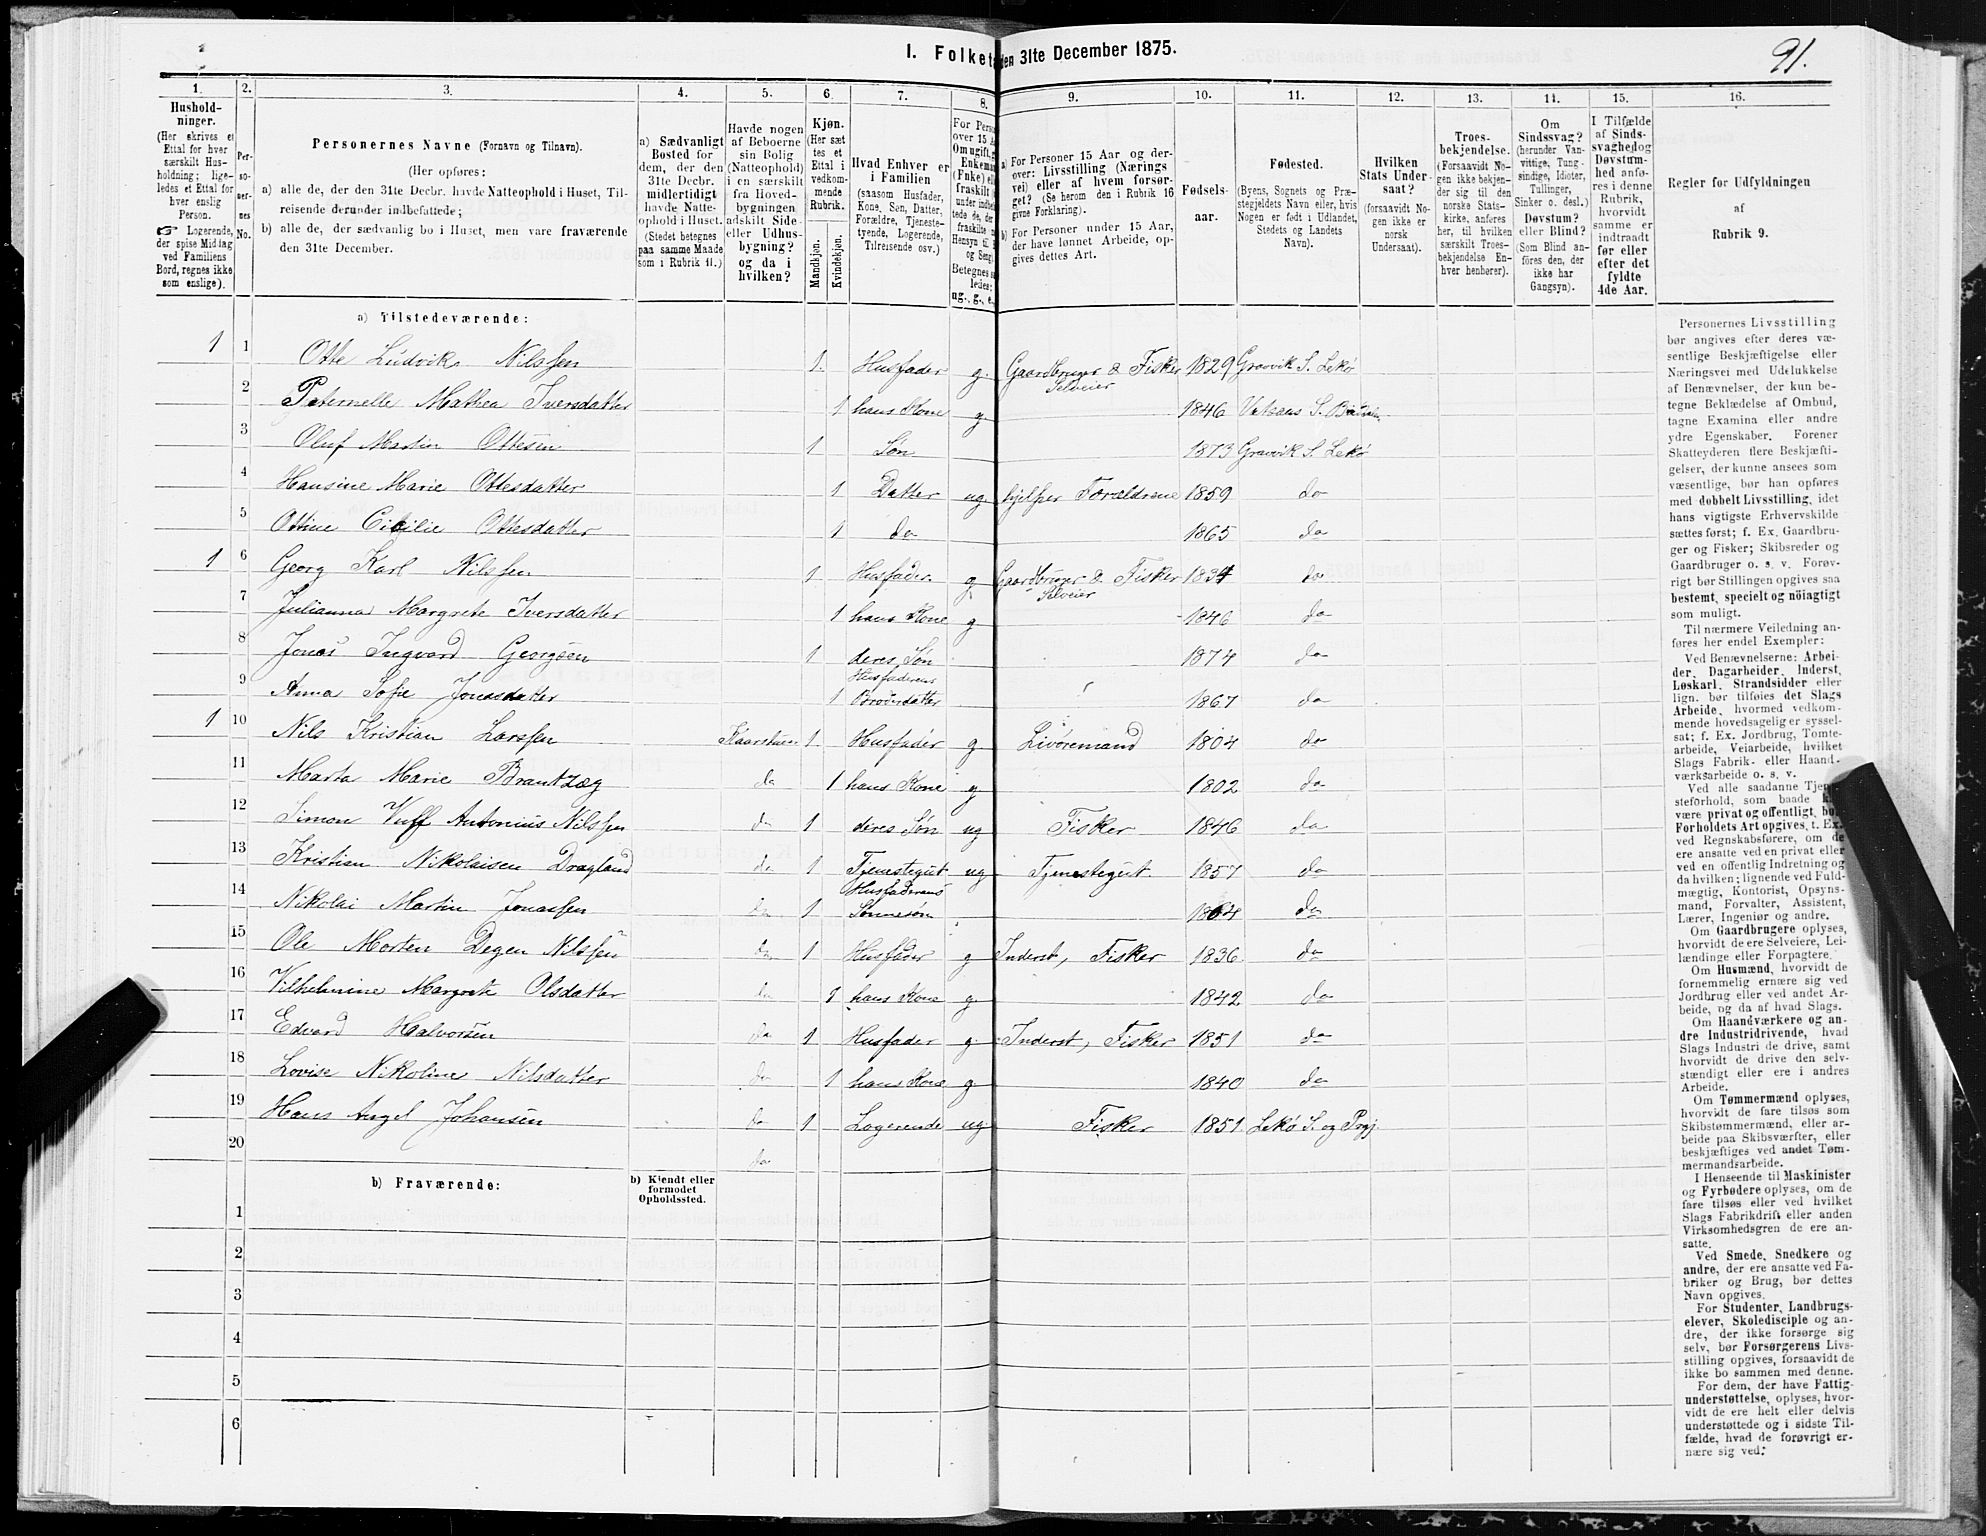 I. Folketæ den 31te December 1875.
91.
1. 2. 3. 4. 5. 6. 7. 8. 9. 10. 11. 12. 13. 14. 15. 16.
Hushold-
ninger.
(Her skrives et
Ettal for hver
særskilt Hus-
holdning; lige-
ledes et Ettal for
hver enslig
Person.
☞ Logerende,
der spise Middag
ved Familiens
Bord, regnes ikke
som enslige).
Per-
so-
ner-
nes
No.
Personernes Navne (Fornavn og Tilnavn).
(Her opføres:
a) alle de, der den 31te Decbr. havde Natteophold i Huset, Til-
reisende derunder indbefattede;
b) alle de, der sædvanlig bo i Huset, men vare fraværende
den 31te December.
a) Sædvanligt
Bosted for
dem, der den
31te Decbr.
midlertidigt
havde Natte-
ophold i Huset.
(Stedet betegnes
paa samme Maade
som i Rubrik 11.)
Havde nogen
af Beboerne
sin Bolig
(Natteophold)
i en særskilt
fra Hoved-
bygningen
adskilt Side-
eller Udhus-
bygning?
og da i
hvilken?
Kjøn.
(Her sæt-
tes et
Ettal i
vedkom-
mende
Rubrik.
Mandkjøn.
Kvindekjøn.
Hvad Enhver er
i Familien
(saasom Husfader,
Kone, Søn, Datter,
Forældre, Tjeneste-
tyende, Logerende,
Tilreisende osv.)
For Perso
over 15 A
Om ugift, g
Enkeman
(Fnke) el
fraskilt
under indbe
tede de, de
fraskilte
Hensyn til
og Seng
Betegnes s
ledes:
ug., g., e.
a) For Personer 15 Aar og der-
over: Livsstilling (Nærings
vei) eller af hvem forsør-
get? (Se herom den i Rubrik 16
givne Forklaring).
b) For Personer under 15 Aar,
der have lønnet Arbeide, op-
gives dettes Art.
Fødsels-
aar.
Fødested.
(Byens, Sognets og Præ-
stegjeldets Navn eller, hvis
Nogen er født i Udlandet,
Stedets og Landets
Navn).
Hvilken
Stats Under-
saat?
(forsaavidt No-
gen ikke er
norsk
Undersaat).
Troes-
bekjendelse.
(Forsaavidt No-
gen ikke bekjen-
der sig til den
norske Stats-
kirke, anføres
her, til hvilken
særskilt Troes-
bekjendelse En-
hver henhører).
Om
Sindssvag?
(herunder Van-
vittige, Tung-
sindige, Idioter,
Tullinger,
Sinker o. desl.)
Døvstum?
eller Blind?
(Som Blind an-
føres den, der
ikke har
Gangsyn).
I Tilfælde
af Sinds-
svaghed og
Døvstum-
hed anfø-
res i denne
Rubrik,
hvorvidt
samme er
indtraadt
før eller
efter det
fyldte
4de Aar.
Regler for Udfyldningen
af
Rubrik 9.
a) Tilstedeværende:
1 1 Otte Ludvik Nilssen 1. Husfader g. Gaardbruger & Fisker Selveier 1829 Gravvik S. Lekø
2 Peternelle Mathea Iversdatter 1 hans Kone g 1846
3 Oluf Martin Ottesen 1 Søn 1873 Gravvik S. Lekø
4 Hansine Marie Ottesdatter 1 Datter ug hjelper Forældrene 1859 do
5 Ottine Cicilie Ottesdatter 1 do 1865 do
1 6 Georg Karl Nilssen 1 Husfader g Gaardbruger & Fisker Selveier 1834 do
7 Julianna Margrete Iversdatter 1 hans Kone g 1846 do
8 Jonas Ingvard Georgsen 1 deres Søn 1874 do
9 Anna Sofie Jonasdatter 1 Husfaderens Brodersdatter 1867 do
1 10 Nils Kristian Larssen Kaarstuen 1 Husfader g Livøremand 1804 do
11 Marta Marie Brantzæg da 1 hans Kone g 1802 do
12 Simon Vuff Antonius Nilssen da 1 deres Søn ug Fisker 1846 do
13 Kristian Nikolaisen Dragland da 1 Tjenestegut ug Tjenestegut 1857 do
14 Nikolai Martin Jonassen da 1 Husfaderens Sønnesøn 1864 do
15 Ole Morten Degen Nilssen da 1 Husfader g Inderst, Fisker 1836 do
16 Vilhelmine Margrete Olsdatter da 1 hans Kone g 1842 do
17 Edvard Halvorsen da 1 Husfader g. Inderst, Fisker 1851 do
18 Lovise Nikoline Nilsdatter da 1 hans Kone g 1840 do
19 Hans Angel Johansen da 1 Logerende ug Fisker 1851 Lekø S. og Prgj.
20 da
b) Fraværende:
b) Kjendt eller
formodet
Opholdssted.
1
2
3
4
5
6
Personernes Livsstilling
bør angives efter deres væ-
sentlige Beskjæftigelse eller
Næringsvei med Udelukkelse
af Benævnelser, der kun be-
tegne Beklædelse af Ombud,
tagne Examina eller andre
ydre Egenskaber. Forener
Skatteyderen flere Beskjæfti-
gelser, der kunne ansees som
væsentlige, bør han opføres
med dobbelt Livsstilling, idet
hans vigtigste Erhvervskilde
sættes først; f. Ex. Gaardbru-
ger og Fisker; Skibsreder og
Gaardbruger o. s. v. Forøv-
rigt bør Stillingen opgives saa
bestemt, specielt og nöiagtigt
som muligt.
Til nærmere Veiledning an-
føres her endel Exempler:
Ved Benævnelserne: Arbei-
der, Dagarbeider, Inderst,
Løskarl, Strandsidder eller
lign. bør tilføies det Slags
Arbeide, hvormed vedkom-
mende hovedsagelig er syssel-
sat; f. Ex. Jordbrug, Tomte-
arbeide, Veiarbeide, hvilket
Slags Fabrik- eller Haand-
værksarbeide o. s. v.
Ved alle saadanne Tjene-
steforhold, som baade k
være privat og offentligt, bø
Forholdets Art opgives, t. Ex.
ved Regnskabsførere, om de
ere ansatte ved en privat eller
ved en offentlig Indretning og
da hvilken; lignende ved Fuld-
mægtig, Kontorist, Opsyns-
mand, Forvalter, Assistent,
Lærer, Ingeniør og andre.
Om Gaardbrugere oplyses,
hvorvidt de ere Selveiere, Lei-
lændinge eller Forpagtere.
Om Husmænd, hvorvidt de
fornemmelig ernære sig ved
Jordbrug eller ved andet Ar-
beide, og da af hvad Slags.
Om Haandværkere og an-
dre Industridrivende, hvad
Slags Industri de drive, samt
hvorvidt de drive den selv-
stændigt eller ere i andres
Arbeide.
Om Tømmermænd oplyses,
hvorvidt de fare tilsøs som
Skibstømmermænd, eller ar-
beide paa Skibsværfter, eller
beskjæftiges ved andet Tøm-
mermandsarbeide.
I Henseende til Maskinister
og Fyrbødere oplyses, om de
fare tilsøs eller ved hvilket
Slags Fabrikdrift eller anden
Virksomhedsgren de ere an-
satte.
Ved Smede, Snedkere og
andre, der ere ansatte ved Fa-
briker og Brug, bør dettes
Navn opgives.
For Studenter, Landbrugs-
elever, Skoledisciple og an-
dre, der ikke forsørge sig
selv, bør Forsørgerens Livs-
stilling opgives, forsaavidt de
ikke bo sammen med denne.
For dem, der have Fattig-
understøttelse, oplyses, hvor-
vidt de ere helt eller delvis
understøttede og i sidste Til-
fælde, hvad de forøvrigt er-
nære sig ved.